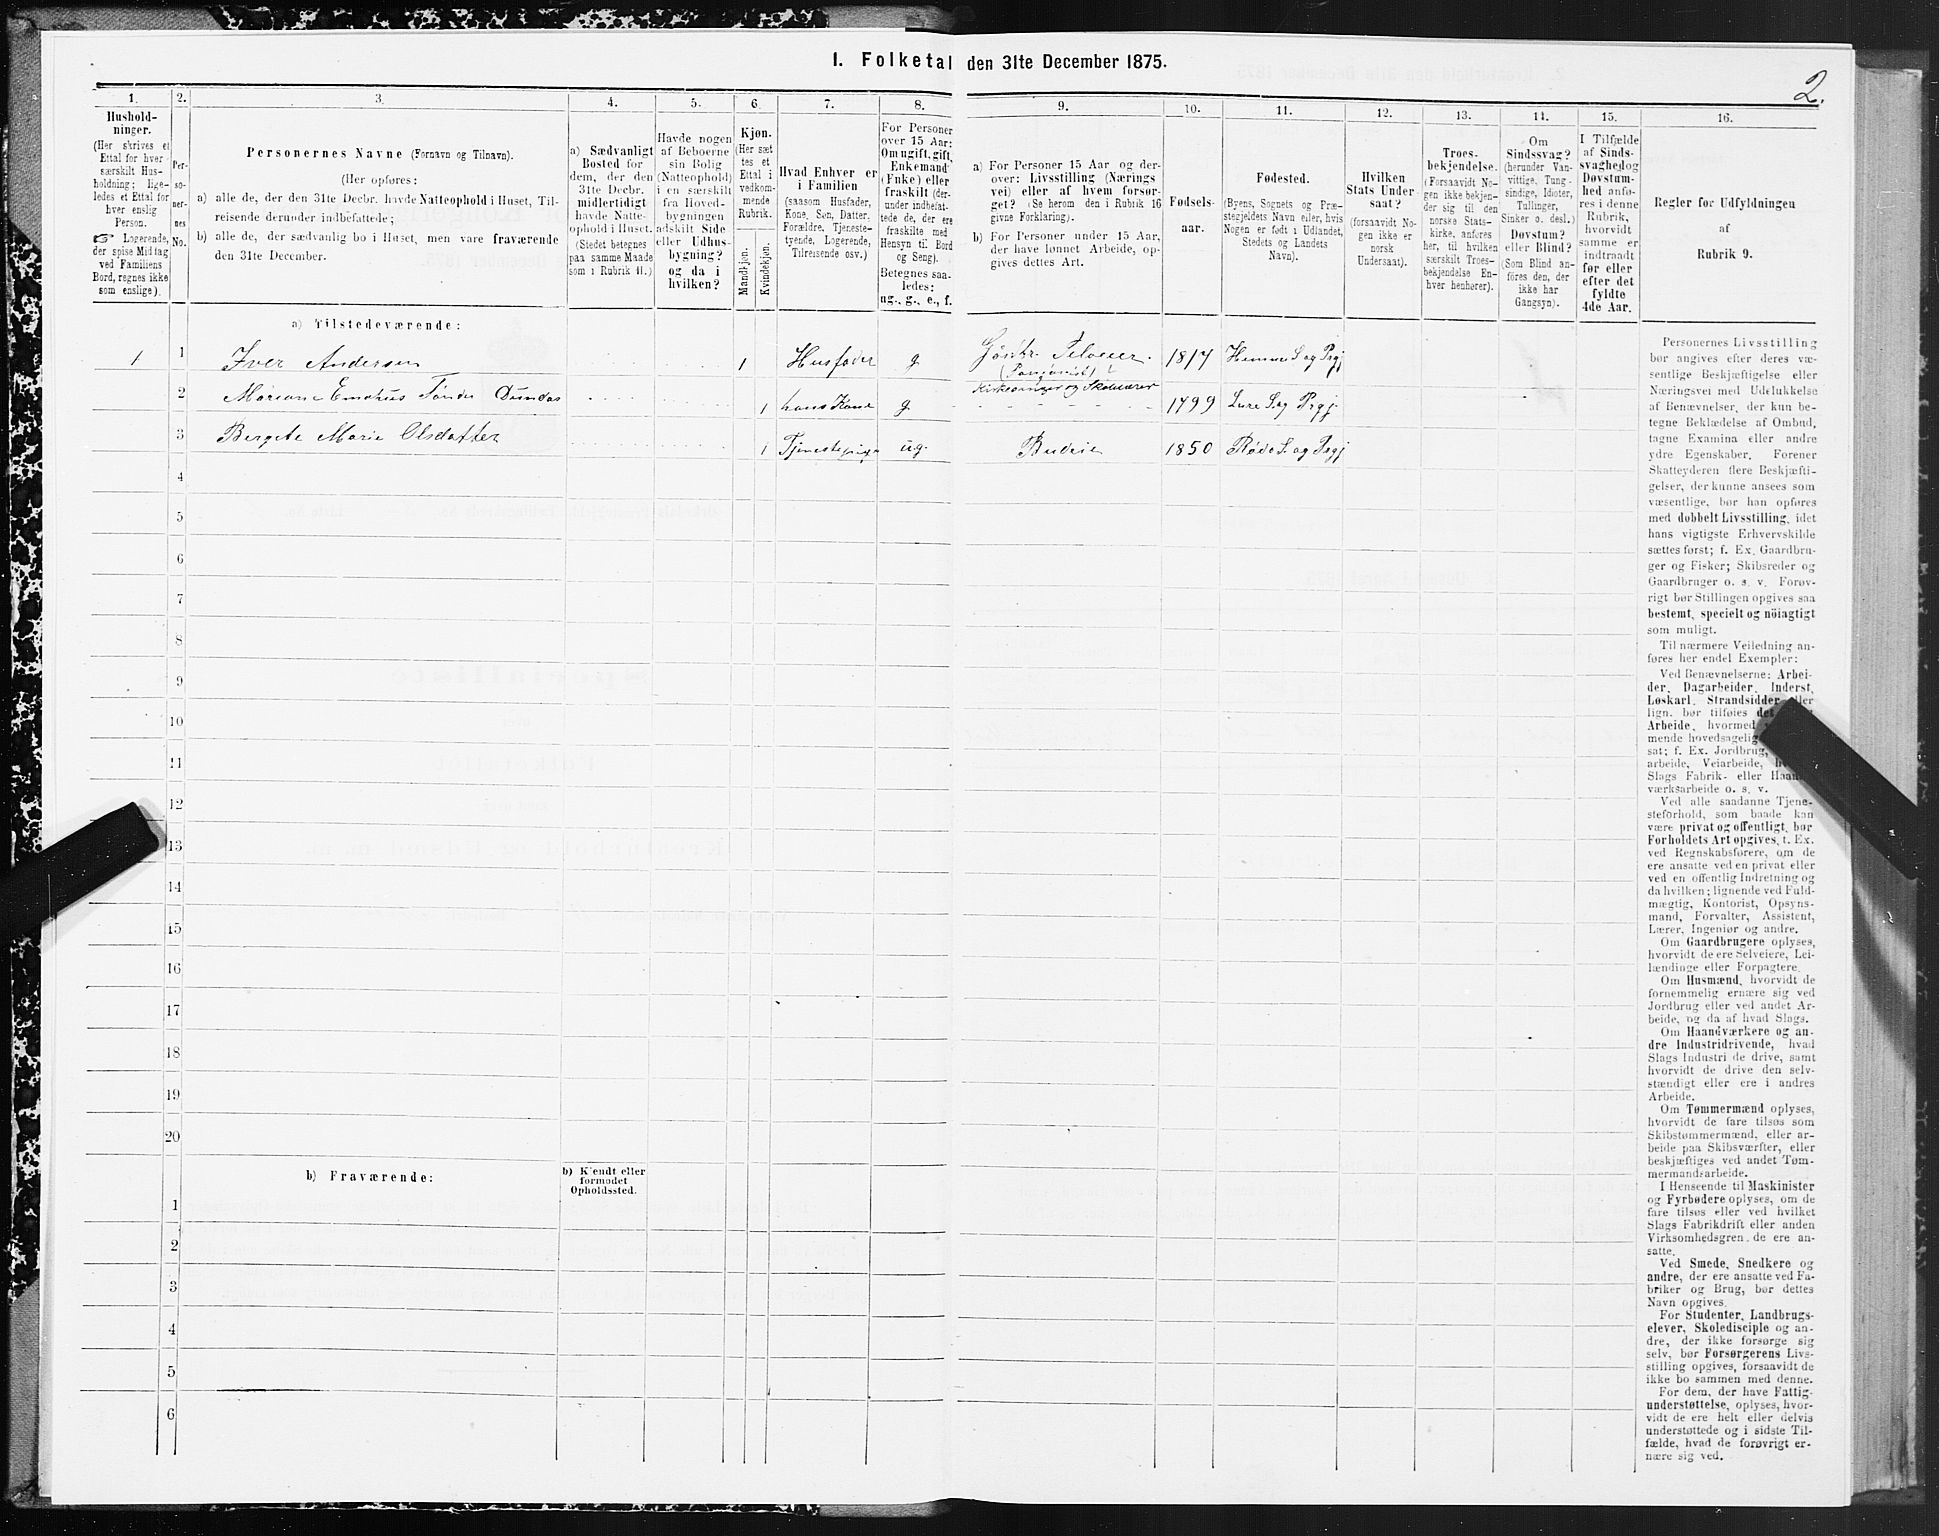 1. Folketal den 31te December 1875.
2.
1.
2.
3.
4.
5.
6.
7.
8.
9.
10.
11.
12.
13.
14.
15.
16.
Hushold-
ninger.
(Her skrives et
Ettal for hver
særskilt Hus-
holdning; lige-
ledes et Ettal for
hver enslig
Person.
☞ Logerende,
der spise Middag
ved Familiens
Bord, regnes ikke
som enslige).
Per-
so-
ner-
nes
No.
Personernes Navne (Fornavn og Tilnavn).
(Her opføres:
a) alle de, der den 31te Decbr. havde Natteophold i Huset, Til-
reisende derunder indbefattede;
b) alle de, der sædvanlig bo i Huset, men vare fraværende
den 31te December.
a) Sædvanligt
Bosted for
dem, der den
31te Decbr.
midlertidigt
havde Natte-
ophold i Huset.
(Stedet betegnes
paa samme Maade
som i Rubrik 11.)
Havde nogen
af Beboerne
sin Bolig
(Natteophold)
i en særskilt
fra Hoved-
bygningen
adskilt Side
eller Udhus-
bygning?
og da i
hvilken?
Kjøn.
(Her sæt
tes et
Ettal i
vedkom-
mende
Rubrik.
Mandkjøn.
Kvindekjøn.
Hvad Enhver er
i Familien
(saasom Husfader,
Kone, Søn, Datter,
Forældre, Tjeneste-
tyende, Logerende,
Tilreisende osv.)
For Personer
over 15 Aar:
Om ugift, gift,
Enkemand
(Enke) eller
fraskilt (der-
under indbefat-
tede de, der ere
fraskilte med
Hensyn til Bord
og Seng).
Betegnes saa-
ledes:
ug., g., e., f.
a) For Personer 15 Aar og der-
over: Livsstilling (Nærings
vei) eller af hvem forsør-
get? (Se herom den i Rubrik 16
givne Forklaring).
b) For Personer under 15 Aar,
der have lønnet Arbeide, op-
gives dettes Art.
Fødsels-
aar.
Fødested.
(Byens, Sognets og Præ-
stegjeldets Navn eller, hvis
Nogen er født i Udlandet,
Stedets og Landets
Navn).
Hvilken
Stats Under-
saat?
(forsaavidt No-
gen ikke er
norsk
Undersaat).
Troes-
bekjendelse.
(Forsaavidt No-
gen ikke bekjen-
der sig til den
norske Stats-
kirke, anføres
her, til hvilken
særskilt Troes-
bekjendelse En-
hver henhører).
Om
Sindssvag?
(herunder Van-
vittige, Tung-
sindige, Idioter,
Tullinger,
Sinker o. desl.)
Døvstum?
eller Blind?
(Som Blind an-
føres den, der
ikke har
Gangsyn).
I Tilfælde
af Sinds-
svaghed og
Døvstum-
hed anfø-
res i denne
Rubrik,
hvorvidt
samme er
indtraadt
før eller
efter det
fyldte
4de Aar.
Regler for Udfyldningen
af
Rubrik 9.
a) Tilstedeværende:
1 1 Iver Andersen 1 Husfader g. Selveier. 1817 Hemnes S. og Prgj
Kirkesanger og Skolelærer
2 Tønder Dundas 1 hans Kone g. 1799 Lurø S. og Prgj.
3 Bergete Marie Olsdatter 1 Tjenestepige ug. Budeie 1850 Rødø S. og Prgj
4
5
6
7
8
9
10
11
12
13
14
15
16
17
18
19
20
b) Fraværende:
b) Kjendt eller
formodet
Opholdssted.
1
2
3
4
5
6
Personernes Livsstilling
bør angives efter deres væ-
sentlige Beskjæftigelse eller
Næringsvei med Udelukkelse
af Benævnelser, der kun be-
tegne Beklædelse af Ombud,
tagne Examina eller andre
ydre Egenskaber. Forener
Skatteyderen flere Beskjæfti-
gelser, der kunne ansees som
væsentlige, bør han opføres
med dobbelt Livsstilling, idet
hans vigtigste Erhvervskilde
sættes først; f. Ex. Gaardbru-
ger og Fisker; Skibsreder og
Gaardbruger o. s. v. Forøv-
rigt bør Stillingen opgives saa
bestemt, specielt og nöiagtigt
som muligt.
Til nærmere Veiledning an-
føres her endel Exempler:
Ved Benævnelserne: Arbei-
der, Dagarbeider, Inderst,
Løskarl, Strandsidder eller
lign. bør tilføies det
Arbeide, hvormed
mende hovedsagelig
sat; f. Ex. Jordbrug,
arbeide, Veiarbeide,
Slags Fabrik- eller Haand-
værksarbeide o. s. v.
Ved alle saadanne Tjene-
steforhold, som baade kan
være privat og offentligt, bør
Forholdets Art opgives, f. Ex.
ved Regnskabsførere, om de
ere ansatte ved en privat eller
ved en offentlig Indretning og
da hvilken; lignende ved Fuld-
mægtig, Kontorist, Opsyns-
mand, Forvalter, Assistent,
Lærer, Ingeniør og andre.
Om Gaardbrugere oplyses,
hvorvidt de ere Selveiere, Lei-
lændinge eller Forpagtere.
Om Husmænd, hvorvidt de
fornemmelig ernære sig ved
Jordbrug eller ved andet Ar-
beide, og da af hvad Slags.
Om Haandværkere og an-
dre Industridrivende, hvad
Slags Industri de drive, samt
hvorvidt de drive den selv-
stændigt eller ere i andres
Arbeide.
Om Tømmermænd oplyses,
hvorvidt de fare tilsøs som
Skibstømmermænd, eller ar-
beide paa Skibsværfter, eller
beskjæftiges ved andet Tøm-
mermandsarbeide.
I Henseende til Maskinister
og Fyrbødere oplyses, om de
fare tilsøs eller ved hvilket
Slags Fabrikdrift eller anden
Virksomhedsgren de ere an-
satte.
Ved Smede, Snedkere og
andre, der ere ansatte ved Fa-
briker og Brug, bør dettes
Navn opgives.
For Studenter, Landbrugs-
elever, Skoledisciple og an-
dre, der ikke forsørge sig
selv, bør Forsørgerens Livs-
stilling opgives, forsaavidt de
ikke bo sammen med denne.
For dem, der have Fattig-
understøttelse, oplyses, hvor-
vidt de ere helt eller delvis
understøttede og i sidste Til-
fælde, hvad de forøvrigt er-
nære sig ved.